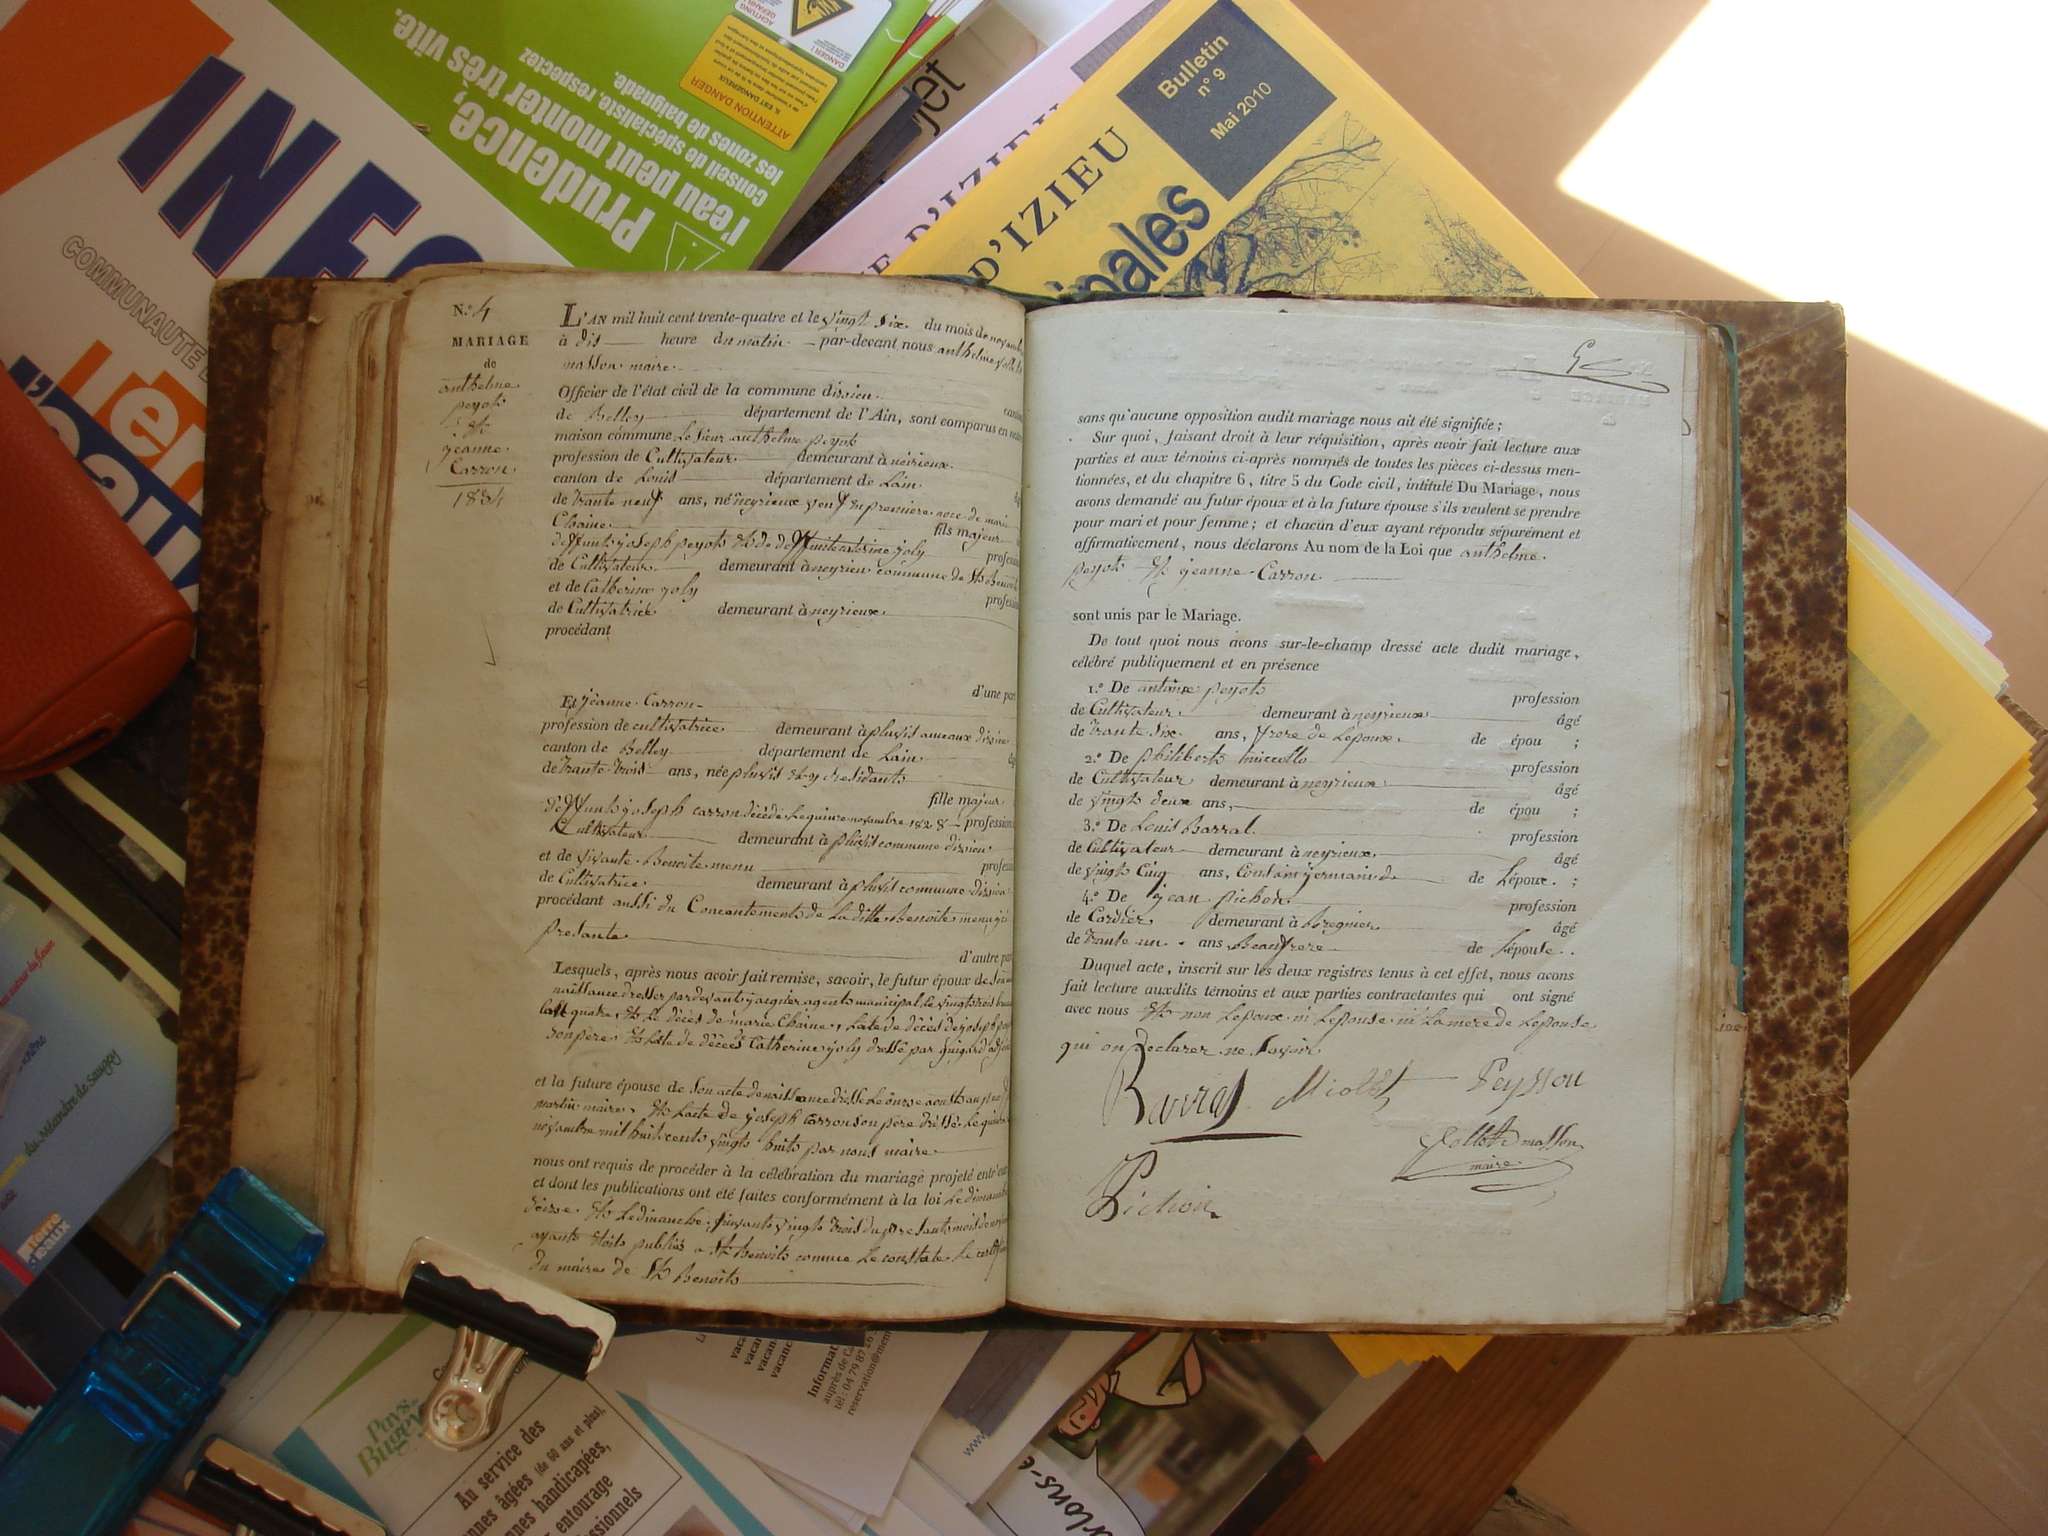 INFO
COMMUNAUTE
Prudence,
l'eau peut monter très vite.
conseil de spécialiste, respectez
les zones de baignade.
ATTENTION DANGER
IL EST DANGEREUX
DANGER!
Bulletin
n° 9
Mai 2010
D'IZIEU
D'IZIEU
N.º 4
MARIAGE
de
anthelme
peyots
et
jeanne
Carron
1834
L'AN mil huit cent trente-quatre et le vingt six du mois de novembre
à dis heure du matin par-devant nous anthelme
masson maire
Officier de l'état civil de la commune dizieu
de Belley département de l'Ain, sont comparus en notre
maison commune Le sieur anthelme peyots
profession de Cultivateur demeurant à neirieux
canton de Louis département de Lain
de trante neuf ans, né neyrieux veuf en premiere noce de marie
Chaine fils majeur
deffunt joseph peyots et de deffunte catérine joly
de Cultivateur demeurant à neyrieu commune de St Benoit
et de Catherine joly
de Cultivatrice demeurant à neyrieux
procédant
d'une part
Et jeanne Carron
profession de cultivatrice demeurant à pluvit ameaux dizieu
canton de Belley département de Lain
de trante trois ans, née pluvit et y residante
fille majeur
deffunt joseph carron décédé Le quinze novambre 1828 profession
Cultivateur demeurant à pluvit commune dizieu
et de vivante Benoite menu
de Cultivatrice demeurant à pluvit commune dizieu
procédant aussi du Concentements de La ditte Benoite menu
presante
d'autre part
Lesquels, après nous avoir fait remise, savoir, le futur époux de son
naissance dresser par devant jacquier agent municipal Le vingt trois
quatre, et Le décès de marie Chaine, Late de décès de joseph
son père et Late de décès de Catherine joly dressé par guigard
et la future épouse de son acte de naissance
martin maire, et Lacte de joseph carron son père dressé Le quinze
novambre mil huit cents vingt huits par nous maire
nous ont requis de procéder à la célébration du mariage projeté entr'eux
et dont les publications ont été faites conformément à la loi Le dimanche
seize et Le dimanche suivante vingt trois du presante mois de
ayants étoits publiés a St Benoits comme Le constate Le
du maire de St Benoits
sans qu'aucune opposition audit mariage nous ait été signifiée ;
Sur quoi, faisant droit à leur réquisition, après avoir fait lecture aux
parties et aux témoins ci-après nommés de toutes les pièces ci-dessus men-
tionnées, et du chapitre 6, titre 5 du Code civil, intitulé Du Mariage, nous
avons demandé au futur époux et à la future épouse s'ils veulent se prendre
pour mari et pour femme ; et chacun d'eux ayant répondu séparément et
affirmativement, nous déclarons Au nom de la Loi que anthelme
peyots et jeanne Carron
sont unis par le Mariage.
De tout quoi nous avons sur-le-champ dressé acte dudit mariage,
célébré publiquement et en présence
1.º De antoine peyots profession
de Cultivateur demeurant à neyrieux âgé
de trante six ans, frere de Lepoux de épou ;
2.º De philiberts profession
de Cultivateur demeurant à neyrieux âgé
de vingts deux ans, de épou ;
3.º De Louis Barral profession
de Cultivateur demeurant à neyrieux âgé
de vingts Cinq ans, Cousain jermain de de Lépoux ;
4.º De jean pichon profession
de Cordier demeurant à Bregnier âgé
de trante un ans Beaufrere de Lépouse .
Duquel acte, inscrit sur les deux registres tenus à cet effet, nous avons
fait lecture auxdits témoins et aux parties contractantes qui ont signé
avec nous et non Lepoux ni Lepouse ni La mere de Lepouse
qui on declarer ne savoir
Barral Miollet Peysson
masson
maire
Pichon
Pays
Bugey
Au service des
âgées (de 60 ans et plus),
handicapées,
entourage